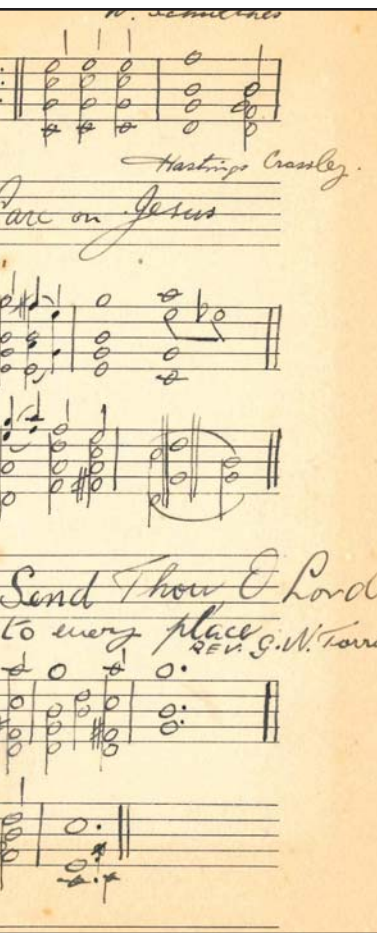 Hastings Crossley.
Care on Jesus
Send Thou O Lord
to every place
REV. G.W. Torr